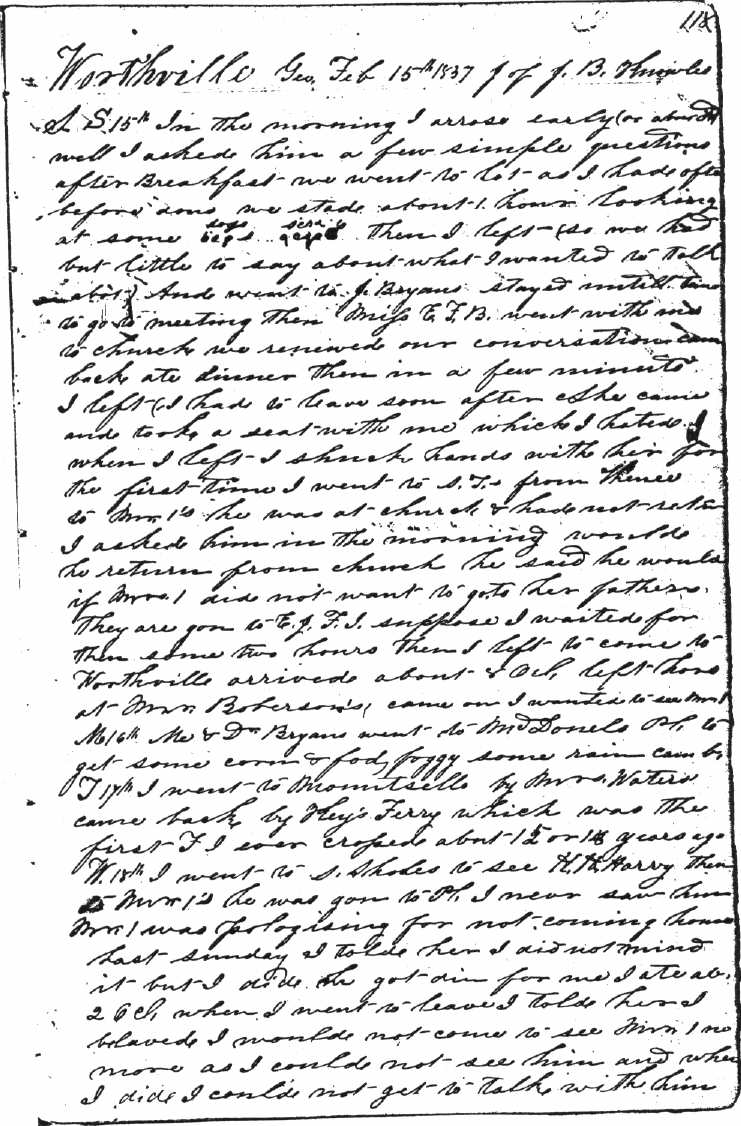 118
Worthville Geo, Feb 15th 1837 J of J. B. Knowles
S 15th In the morning I arose early (or about
well I asked him a few simple questions
after Breakfast we went to lot as I had ofte
before done we stade about 1 hour looking
at some then I left (so we had
but little to say about what I wanted to talk
about) And went to J. Bryans stayed untill time
to go to meeting then Miss E F. B. went with me
to church we renewed our conversation cam
back ate dinner then in a few minuts
I left (I had to leave soon after She came
and took a seat with me which I hated. I
when I left I shuck hands with her for
the first time I went to S. T.s from thence
to Mr 1's he was at church & had not retu
I asked him in the morning would
he return from church he said he would
if Mrs. 1 did not want to goto her fathers.
They are gon to E. J. F. I. suppose I waited for
them some two hours then I left to come to
Worthville arrived about 8 Oc, left hors
at Mrs. Roberson's, came on I wanted to see Mr 1
M 16th Me & Dr Bryans went to McDonels Ph. to
get some corn & fod, foggy some rain cam b
T 17th I went to Monntsello by Mrs. Waters
came back by Key's Ferry which was the
first F I ever crosed abut 15 or 18 years ago
W. 18th I went to S. Rhodes to see H. H. Harvy then
to Mr 1's he was gon to Ph. I never saw him
Mrs 1 was pologising for not coming home
last sunday I tolde her I did not mind
it but I dide. She got din for me I ate at
2 Oc, when I went to leave I tolde her I
belaved I woulde not come to see Mr 1 no
more as I coulde not see him and when
I dide I coulde not get to talk with him